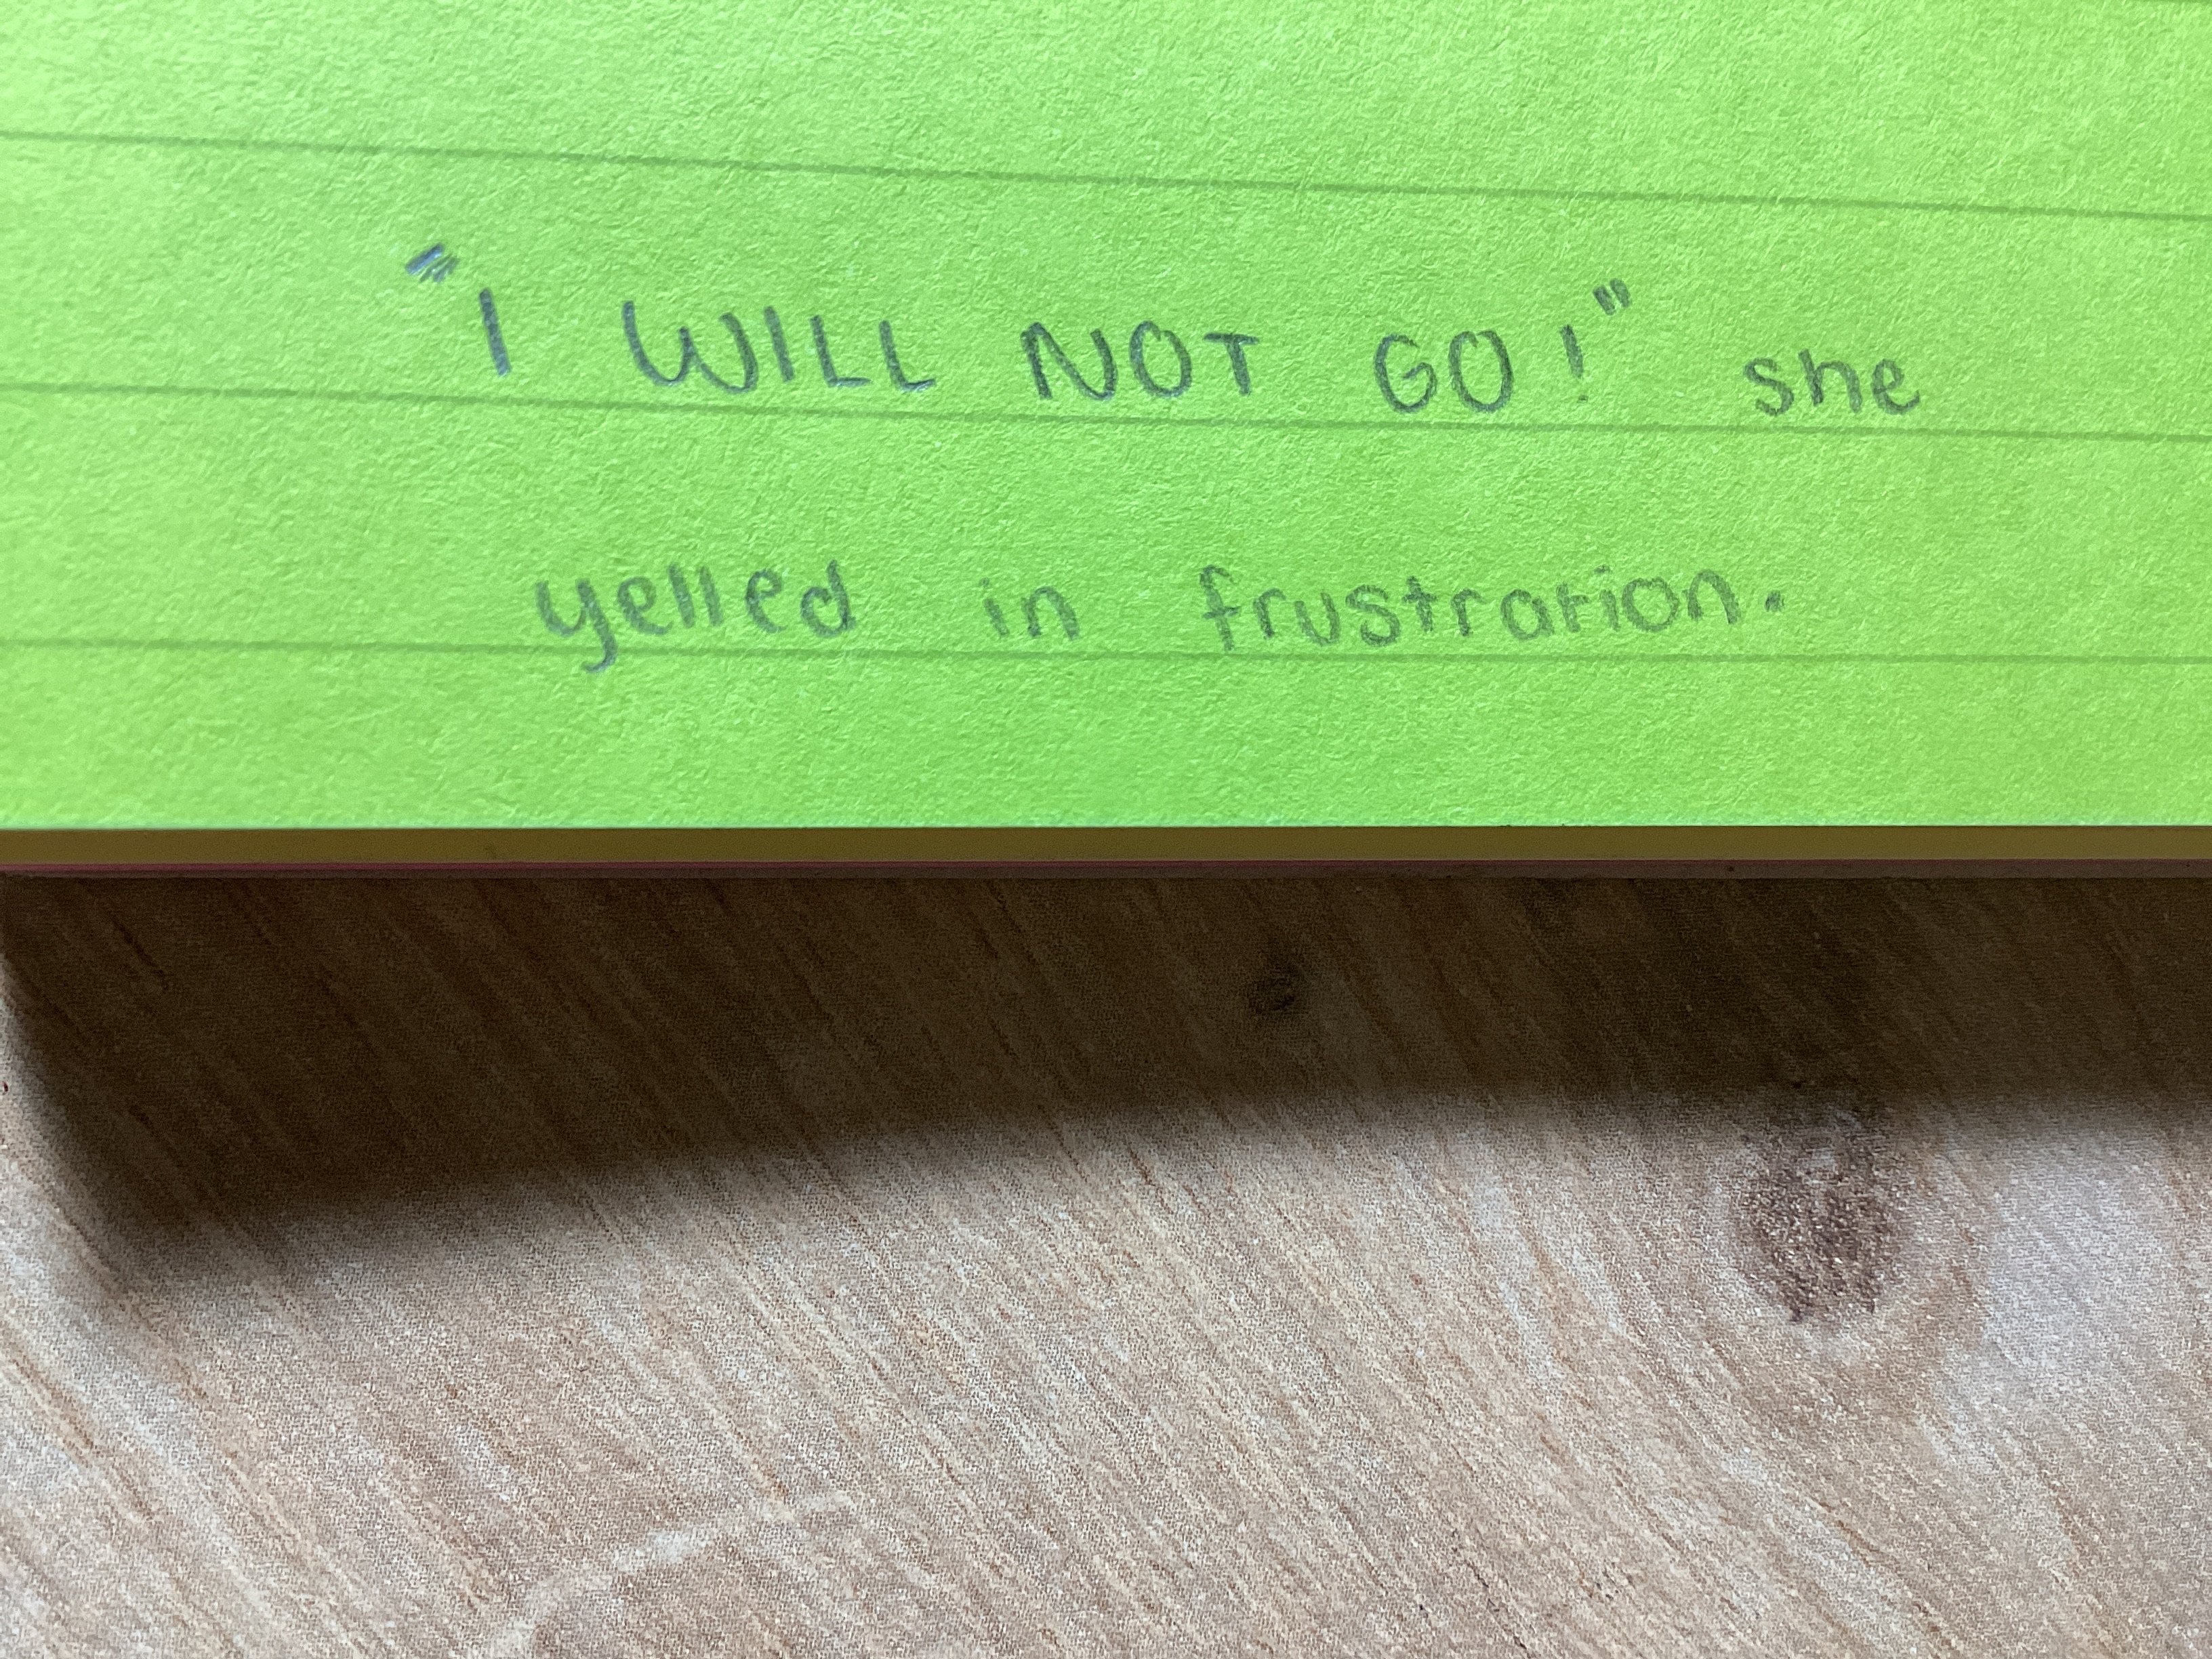 "I WILL NOT GO!" she
yelled in frustration.